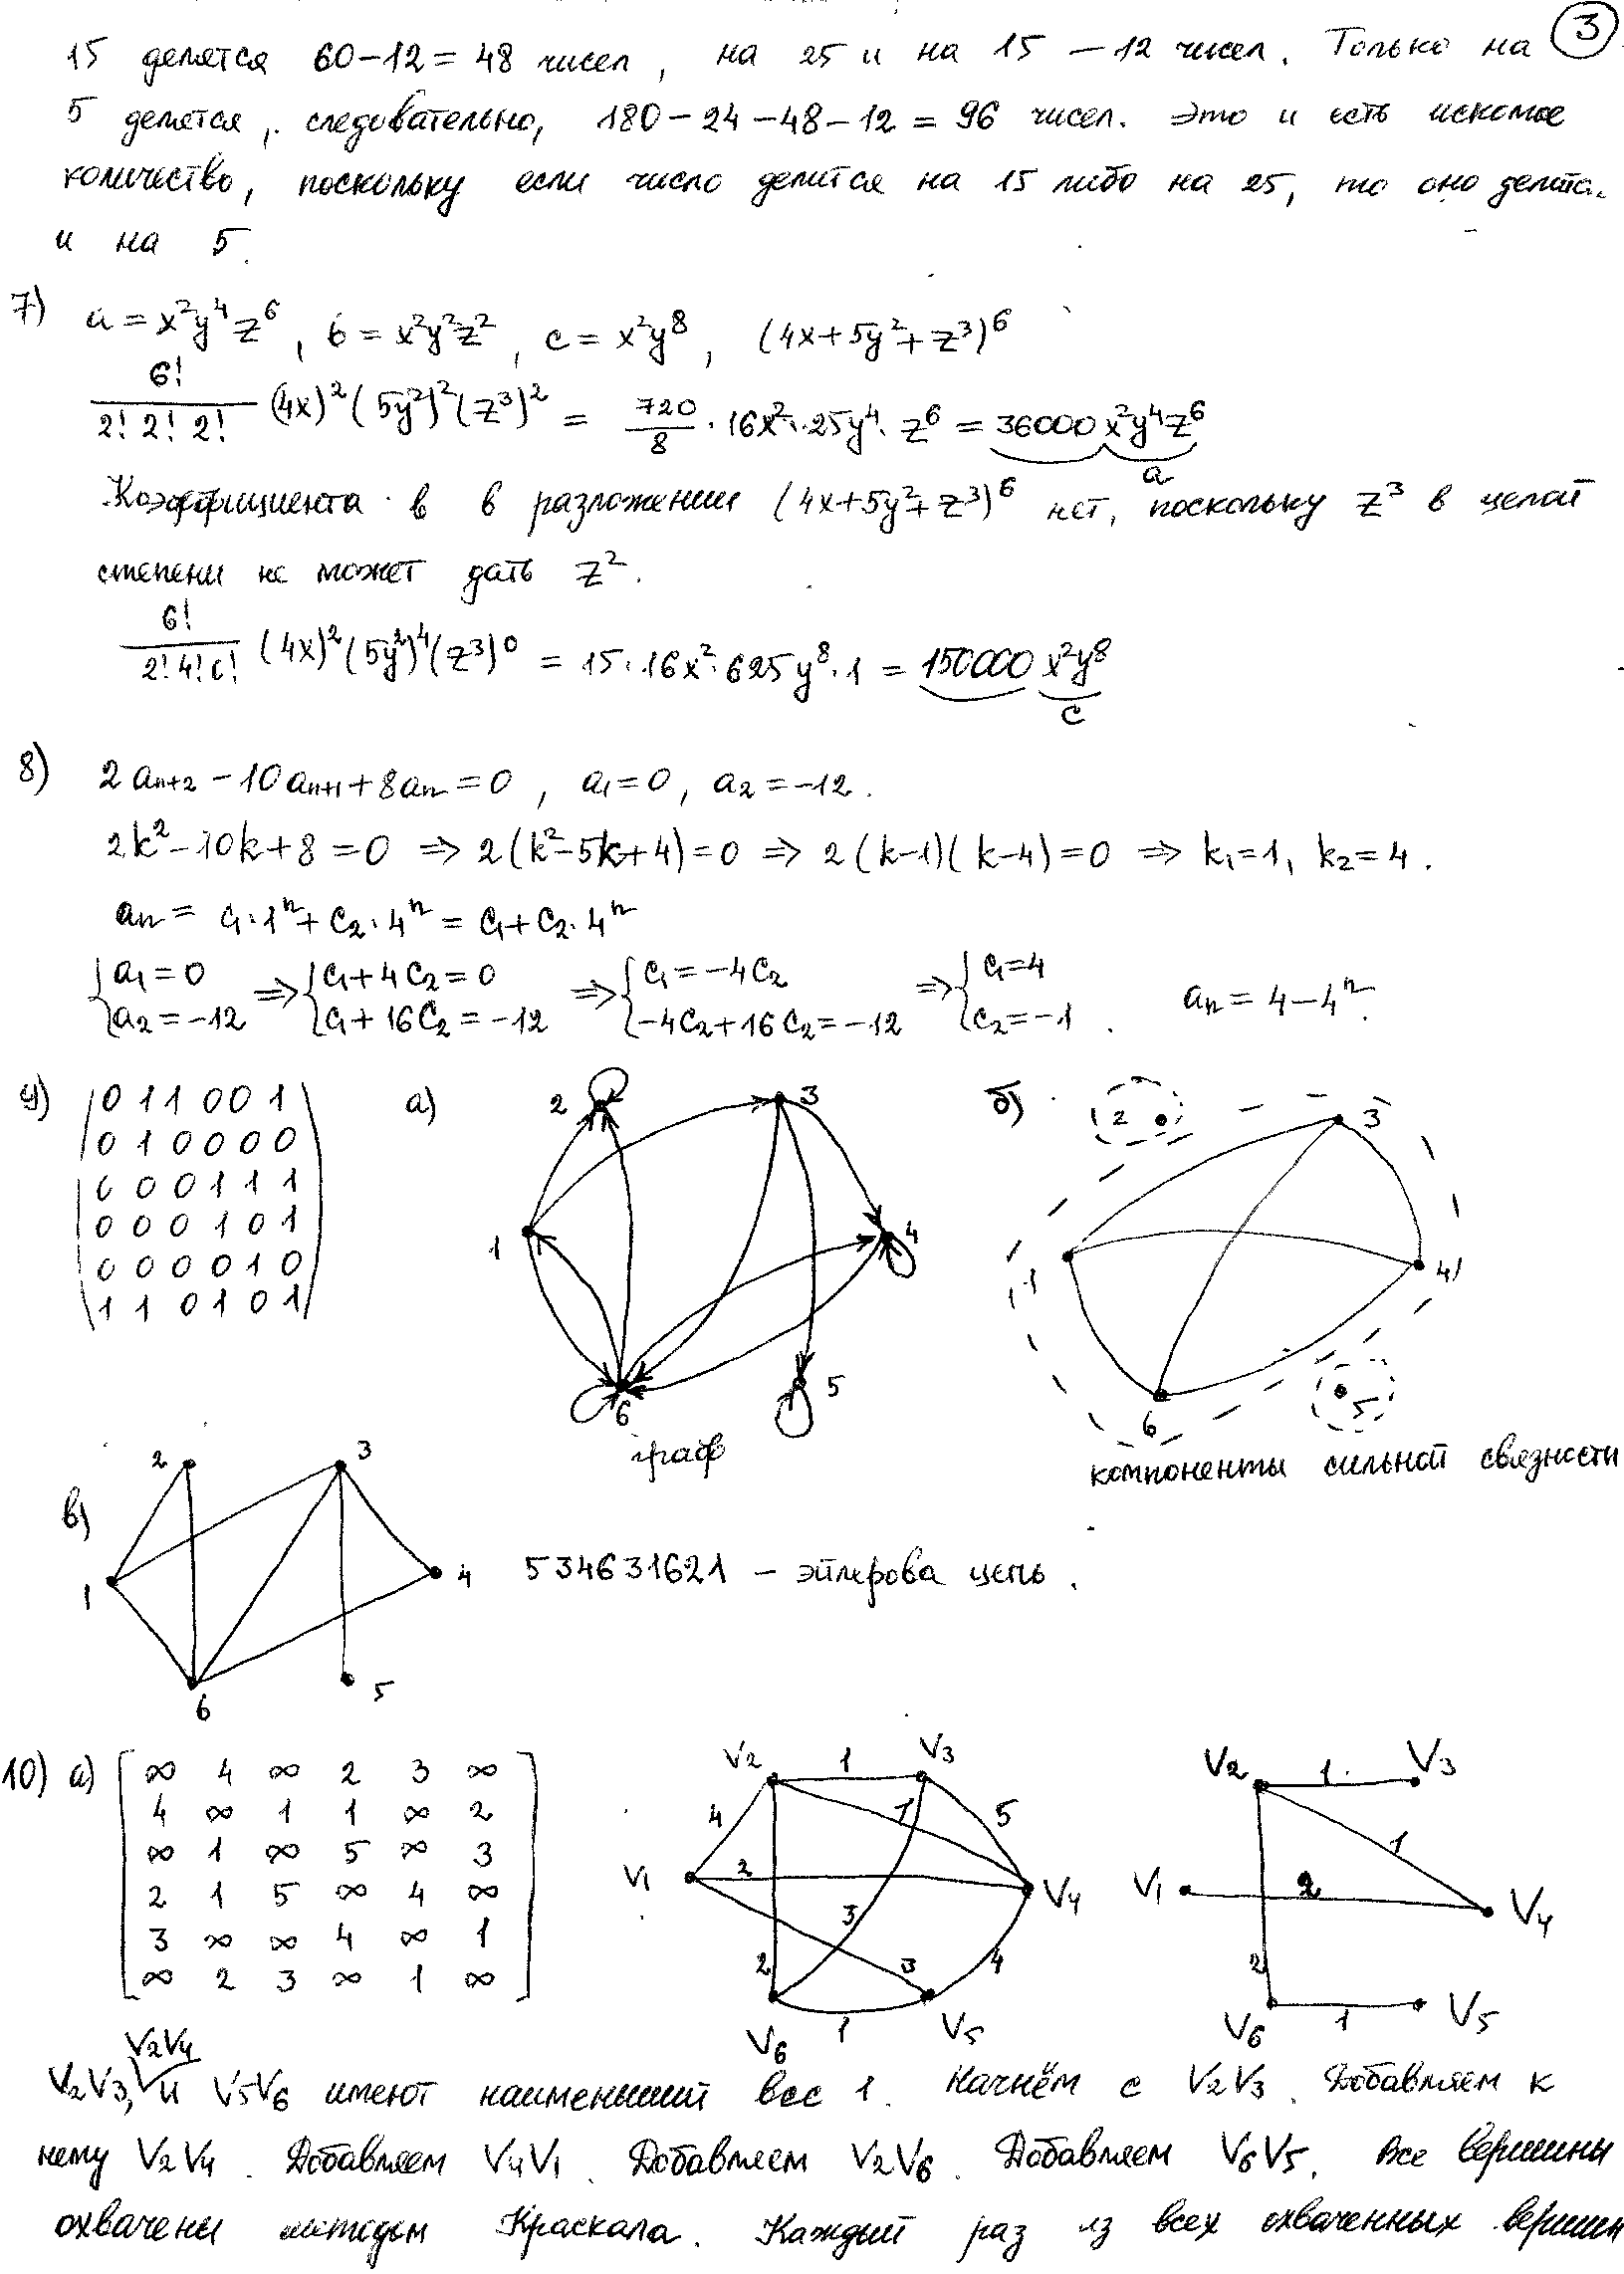 3
15 делятся 60-12=48 чисел, на 25 и на 15 — 12 чисел. Только на
5 делятся, следовательно, 180-24-48-12=96 чисел. Это и есть искомое
количество, поскольку если число делится на 15 либо на 25, то оно делится
и на 5.
7) a=x²y⁴z⁶, b=x²y²z², c=x²y⁸, (4x+5y²+z³)⁶
6!/(2! 2! 2!) (4x)²(5y²)²(z³)² = 720/8 · 16x² · 25y⁴ · z⁶ = 36000 x²y⁴z⁶
a
Коэффициента b в разложении (4x+5y²+z³)⁶ нет, поскольку z³ в целой
степени не может дать z².
6!/(2! 4! 0!) (4x)²(5y²)⁴(z³)⁰ = 15·16x²·625y⁸·1 = 150000 x²y⁸
c
8) 2aₙ₊₂ - 10aₙ₊₁ + 8aₙ = 0, a₁=0, a₂=-12.
2k²-10k+8=0 ⇒ 2(k²-5k+4)=0 ⇒ 2(k-1)(k-4)=0 ⇒ k₁=1, k₂=4.
aₙ = c₁·1ⁿ+c₂·4ⁿ = c₁+c₂·4ⁿ
{a₁=0 ⇒ {c₁+4c₂=0 ⇒ {c₁=-4c₂ ⇒ {c₁=4
{a₂=-12 {c₁+16c₂=-12 {-4c₂+16c₂=-12 {c₂=-1. aₙ=4-4ⁿ.
9)
0 1 1 0 0 1
0 1 0 0 0 0
0 0 0 1 1 1
0 0 0 1 0 1
0 0 0 0 1 0
1 1 0 1 0 1
а) 2 3
1 4
6 5
граф
б) 2 3
1 4
6 5
компоненты сильной связности
в) 2 3
1 4
6 5
534631621 — эйлерова цепь.
10) а)
∞ 4 ∞ 2 3 ∞
4 ∞ 1 1 ∞ 2
∞ 1 ∞ 5 ∞ 3
2 1 5 ∞ 4 ∞
3 ∞ ∞ 4 ∞ 1
∞ 2 3 ∞ 1 ∞
V₂ 1 V₃
4 1 5
V₁ 2 V₄
3
2 3 4
V₆ 1 V₅
V₂ 1 V₃
1
V₁ 2 V₄
2
V₆ 1 V₅
V₂V₄
V₂V₃, и V₅V₆ имеют наименьший вес 1. Начнём с V₂V₃. Добавляем к
нему V₂V₄. Добавляем V₄V₁. Добавляем V₂V₆. Добавляем V₆V₅. Все вершины
охвачены методом Краскала. Каждый раз из всех охваченных вершин